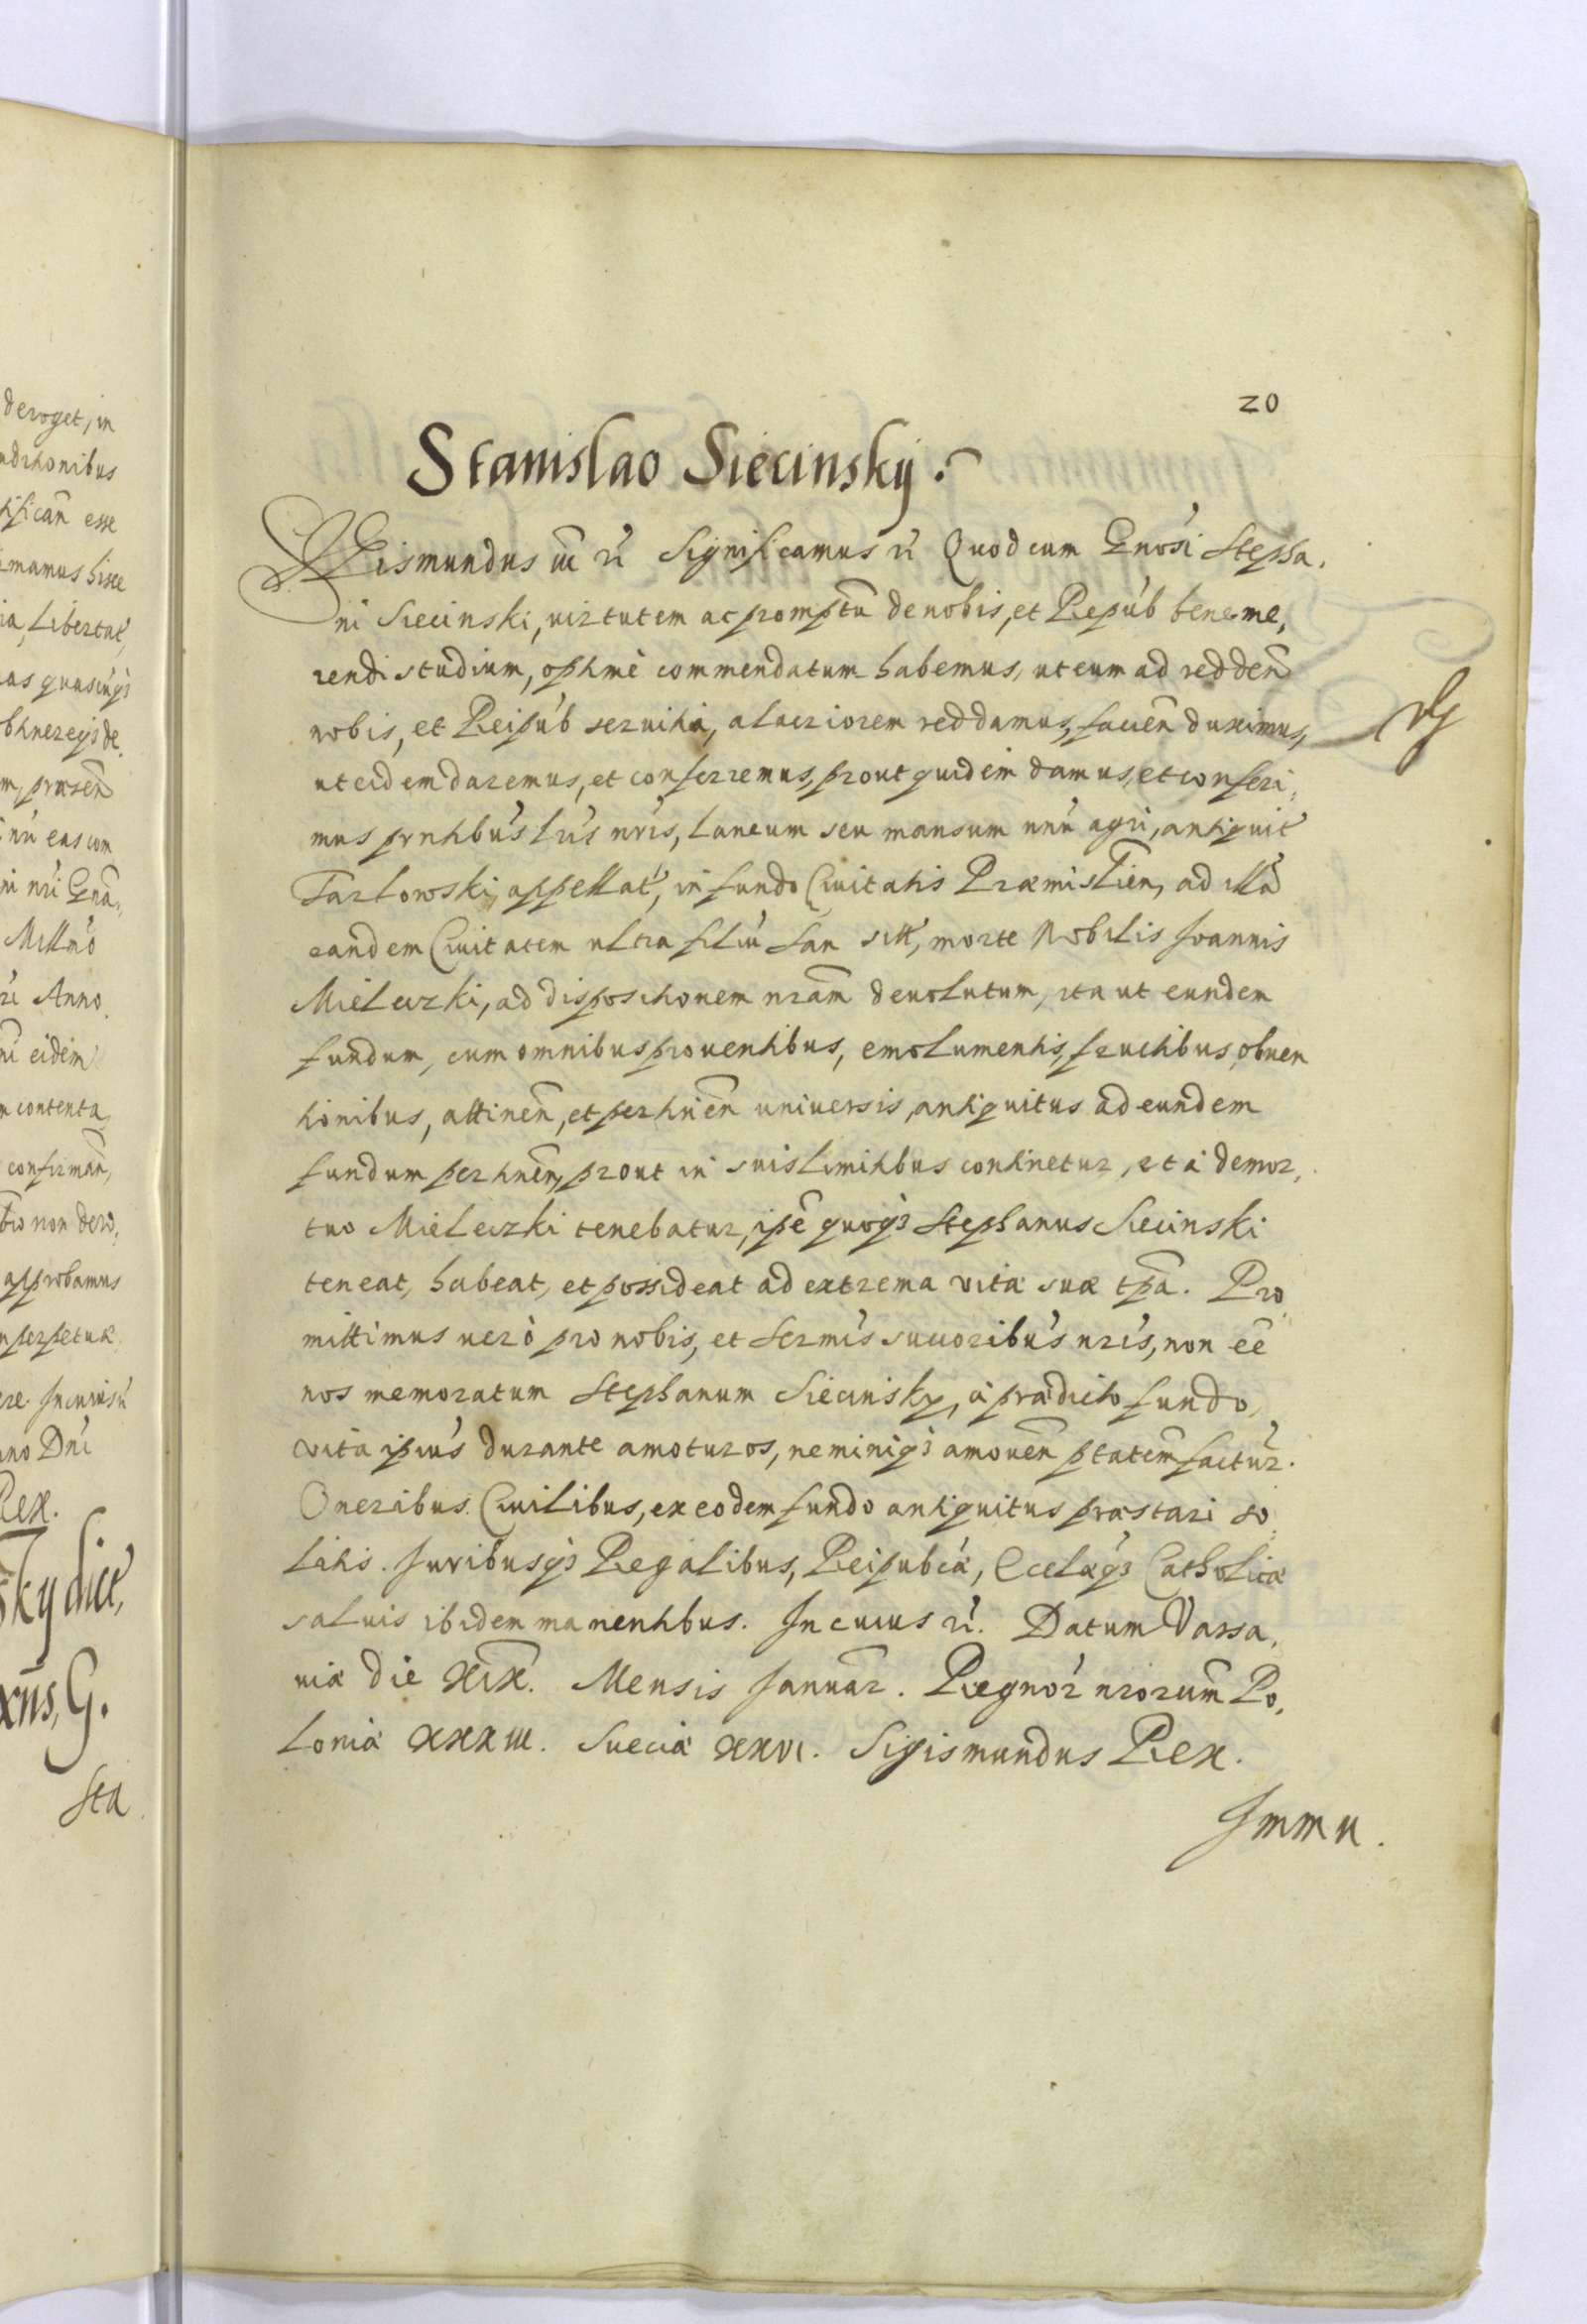 deroget, in
honibus
esse
mamus hisce
Libertat,
præsen̄
eas com
Anno
eidem
contenta
confirman̄,
tio non dero,
approbamus
perpetuæ
no Dn̓i
Rex.
sky dict,
G.
Sta
20
Stanislao Siecinskÿ.
Sigismundus iiī r̓i Significamus r̓i Quod cum Gnȯsi Stepha,
ni Siecinski, uirtutem ac promptū de nobis, et Repu̓b bene me,
rendi studium, optimè commendatum habemus, ut eum ad redden̄
nobis, et Reipu̓b seruitia, alacriorem reddamus, faciēn duximus,
ut eidem daremus, et conferremus, prout quidem damus, et conferi,
mus prntibu̓s Lr̓is nr̓is, Laneum seu mansum unū agri, antiquit̓
Tarlowski appellat̓, in fundo Ciuitatis Præmislien̄, ad illā
eandem Ciuitatem ultra filiū San sitt̓, morte Nobilis Joannis
Mieleczki, ad dispositionem nrām deuolutum, ita ut eundem
fundum, cum omnibus prouentibus, emolumentis, fructibus, obuen
tionibus, attinen̄, et pertinēn uniuersis, antiquitus ad eundem
fundum pertinēn, prout in suis limitibus continetur, et à demor,
tuo Mieleczki tenebatur, ipē quoqꝫ Stephanus Siecinski
teneat, habeat, et possideat ad extrema vitæ suæ tp̄a. Pro
mittimus uerò pro nobis, et Sermi̓s succoribu̓s nri̓s, non eē
nos memoratum Stephanum Siecinsky, à prædicto fundo,
vita ipiu̓s durante amoturos, neminiqꝫ amouen̄ ptatēm factūr̓.
Oneribus Ciuilibus, ex eodem fundo antiquitus præstari so,
litis. Juribusqꝫ Regalibus, Reipubcæ̓, Eccl̓æqꝫ Catholicæ
saluis ibidem manentibus. In cuius r̓i. Datum Varsa,
uiæ die XIX̄. Mensis Januār. Regnor̓ nrorum̄ Po,
loniæ XXXIII. Sueciæ XXVI. Sigismundus Rex.
Immu.